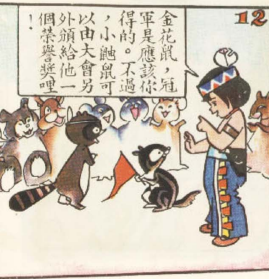 12
金花鼠，冠
軍是應該你
得的。不過
，小鼬鼠可
以由大會另
外頒給他一
個榮譽獎哩
！